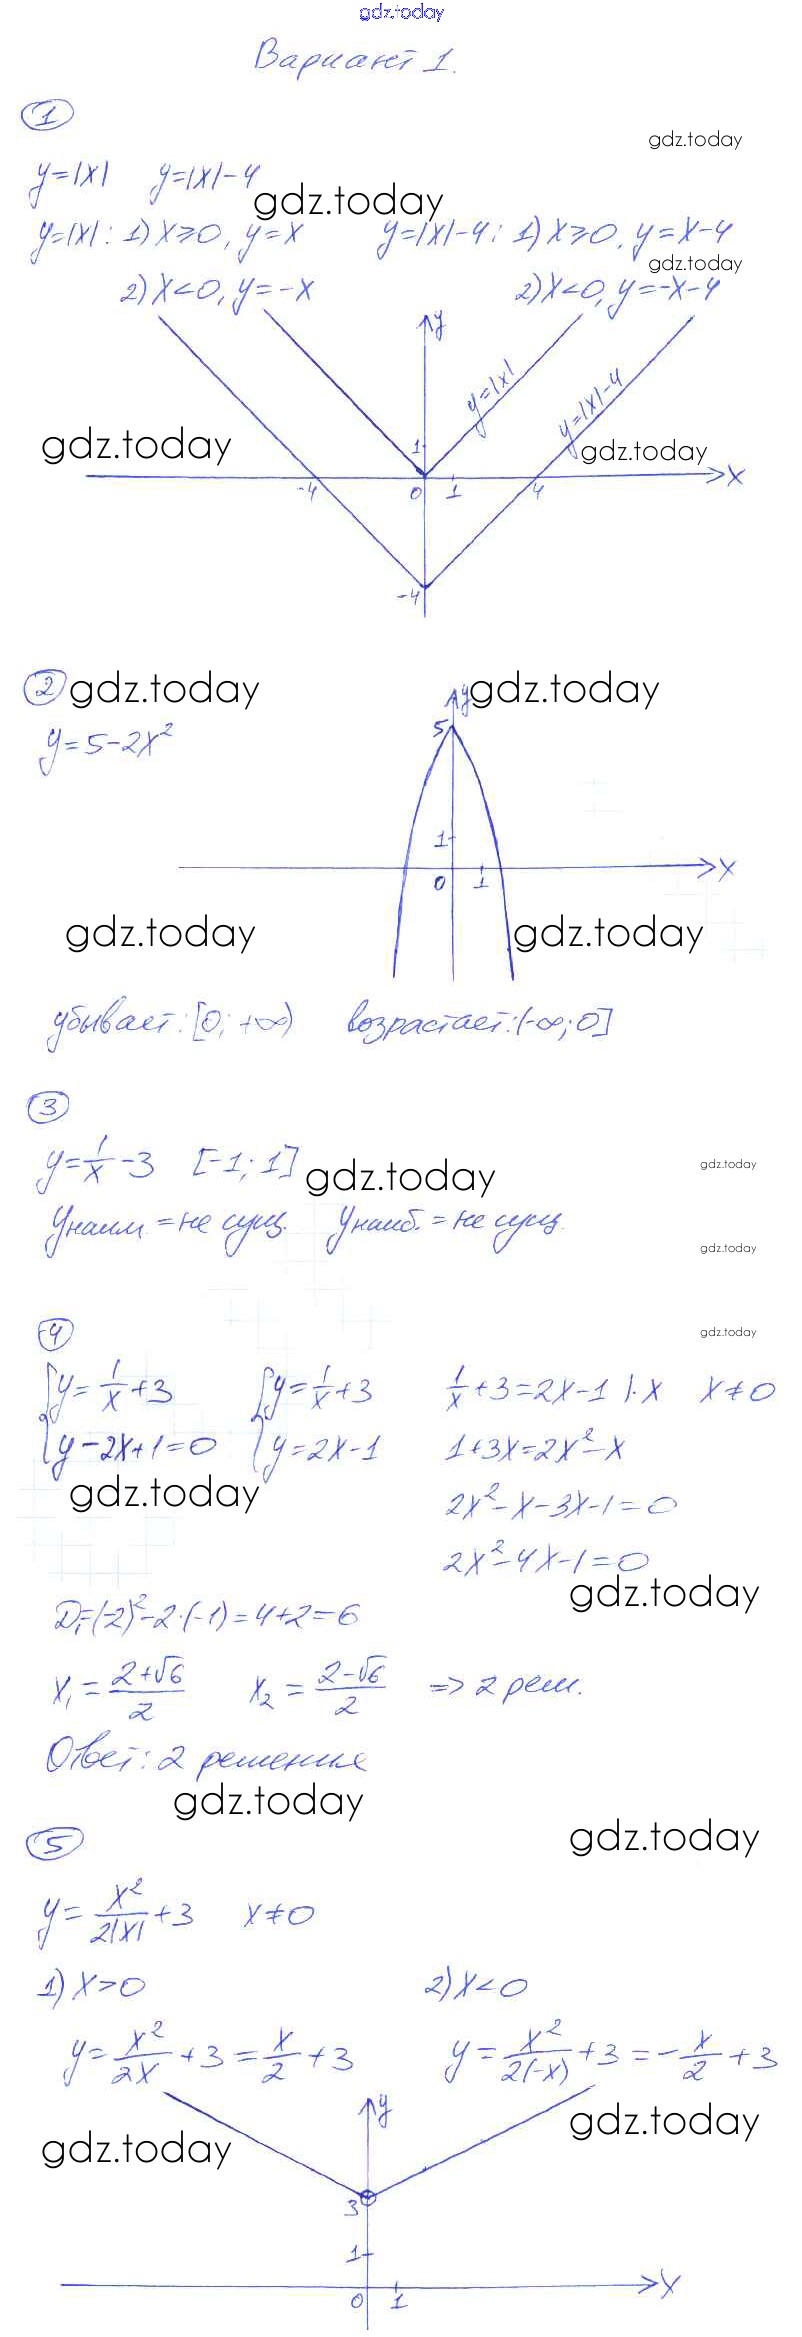 gdz.today
Вариант 1.
1
gdz.today
y=|x| y=|x|-4
gdz.today
y=|x|: 1) x≥0, y=x y=|x|-4: 1) x≥0, y=x-4
gdz.today
2) x<0, y=-x 2) x<0, y=-x-4
y
y=|x|
y=|x|-4
gdz.today
1
gdz.today
x
-4 0 1 4
-4
2 gdz.today
y gdz.today
5
y=5-2x²
1
x
0 1
gdz.today gdz.today
убывает: [0; +∞) возрастает: (-∞; 0]
3
y=1/x-3 [-1; 1]
gdz.today gdz.today
yнаим. = не сущ. yнаиб. = не сущ.
gdz.today
4
gdz.today
{y=1/x+3 {y=1/x+3 1/x+3=2x-1 |·x x≠0
{y-2x+1=0 {y=2x-1 1+3x=2x²-x
gdz.today
2x²-x-3x-1=0
2x²-4x-1=0
gdz.today
D₁=(-2)²-2·(-1)=4+2=6
x₁=(2+√6)/2 x₂=(2-√6)/2 => 2 реш.
Ответ: 2 решения
gdz.today
gdz.today
5
y=x²/2|x|+3 x≠0
1) x>0 2) x<0
y=x²/2x+3=x/2+3 y=x²/2(-x)+3=-x/2+3
y
gdz.today gdz.today
3
1
x
0 1